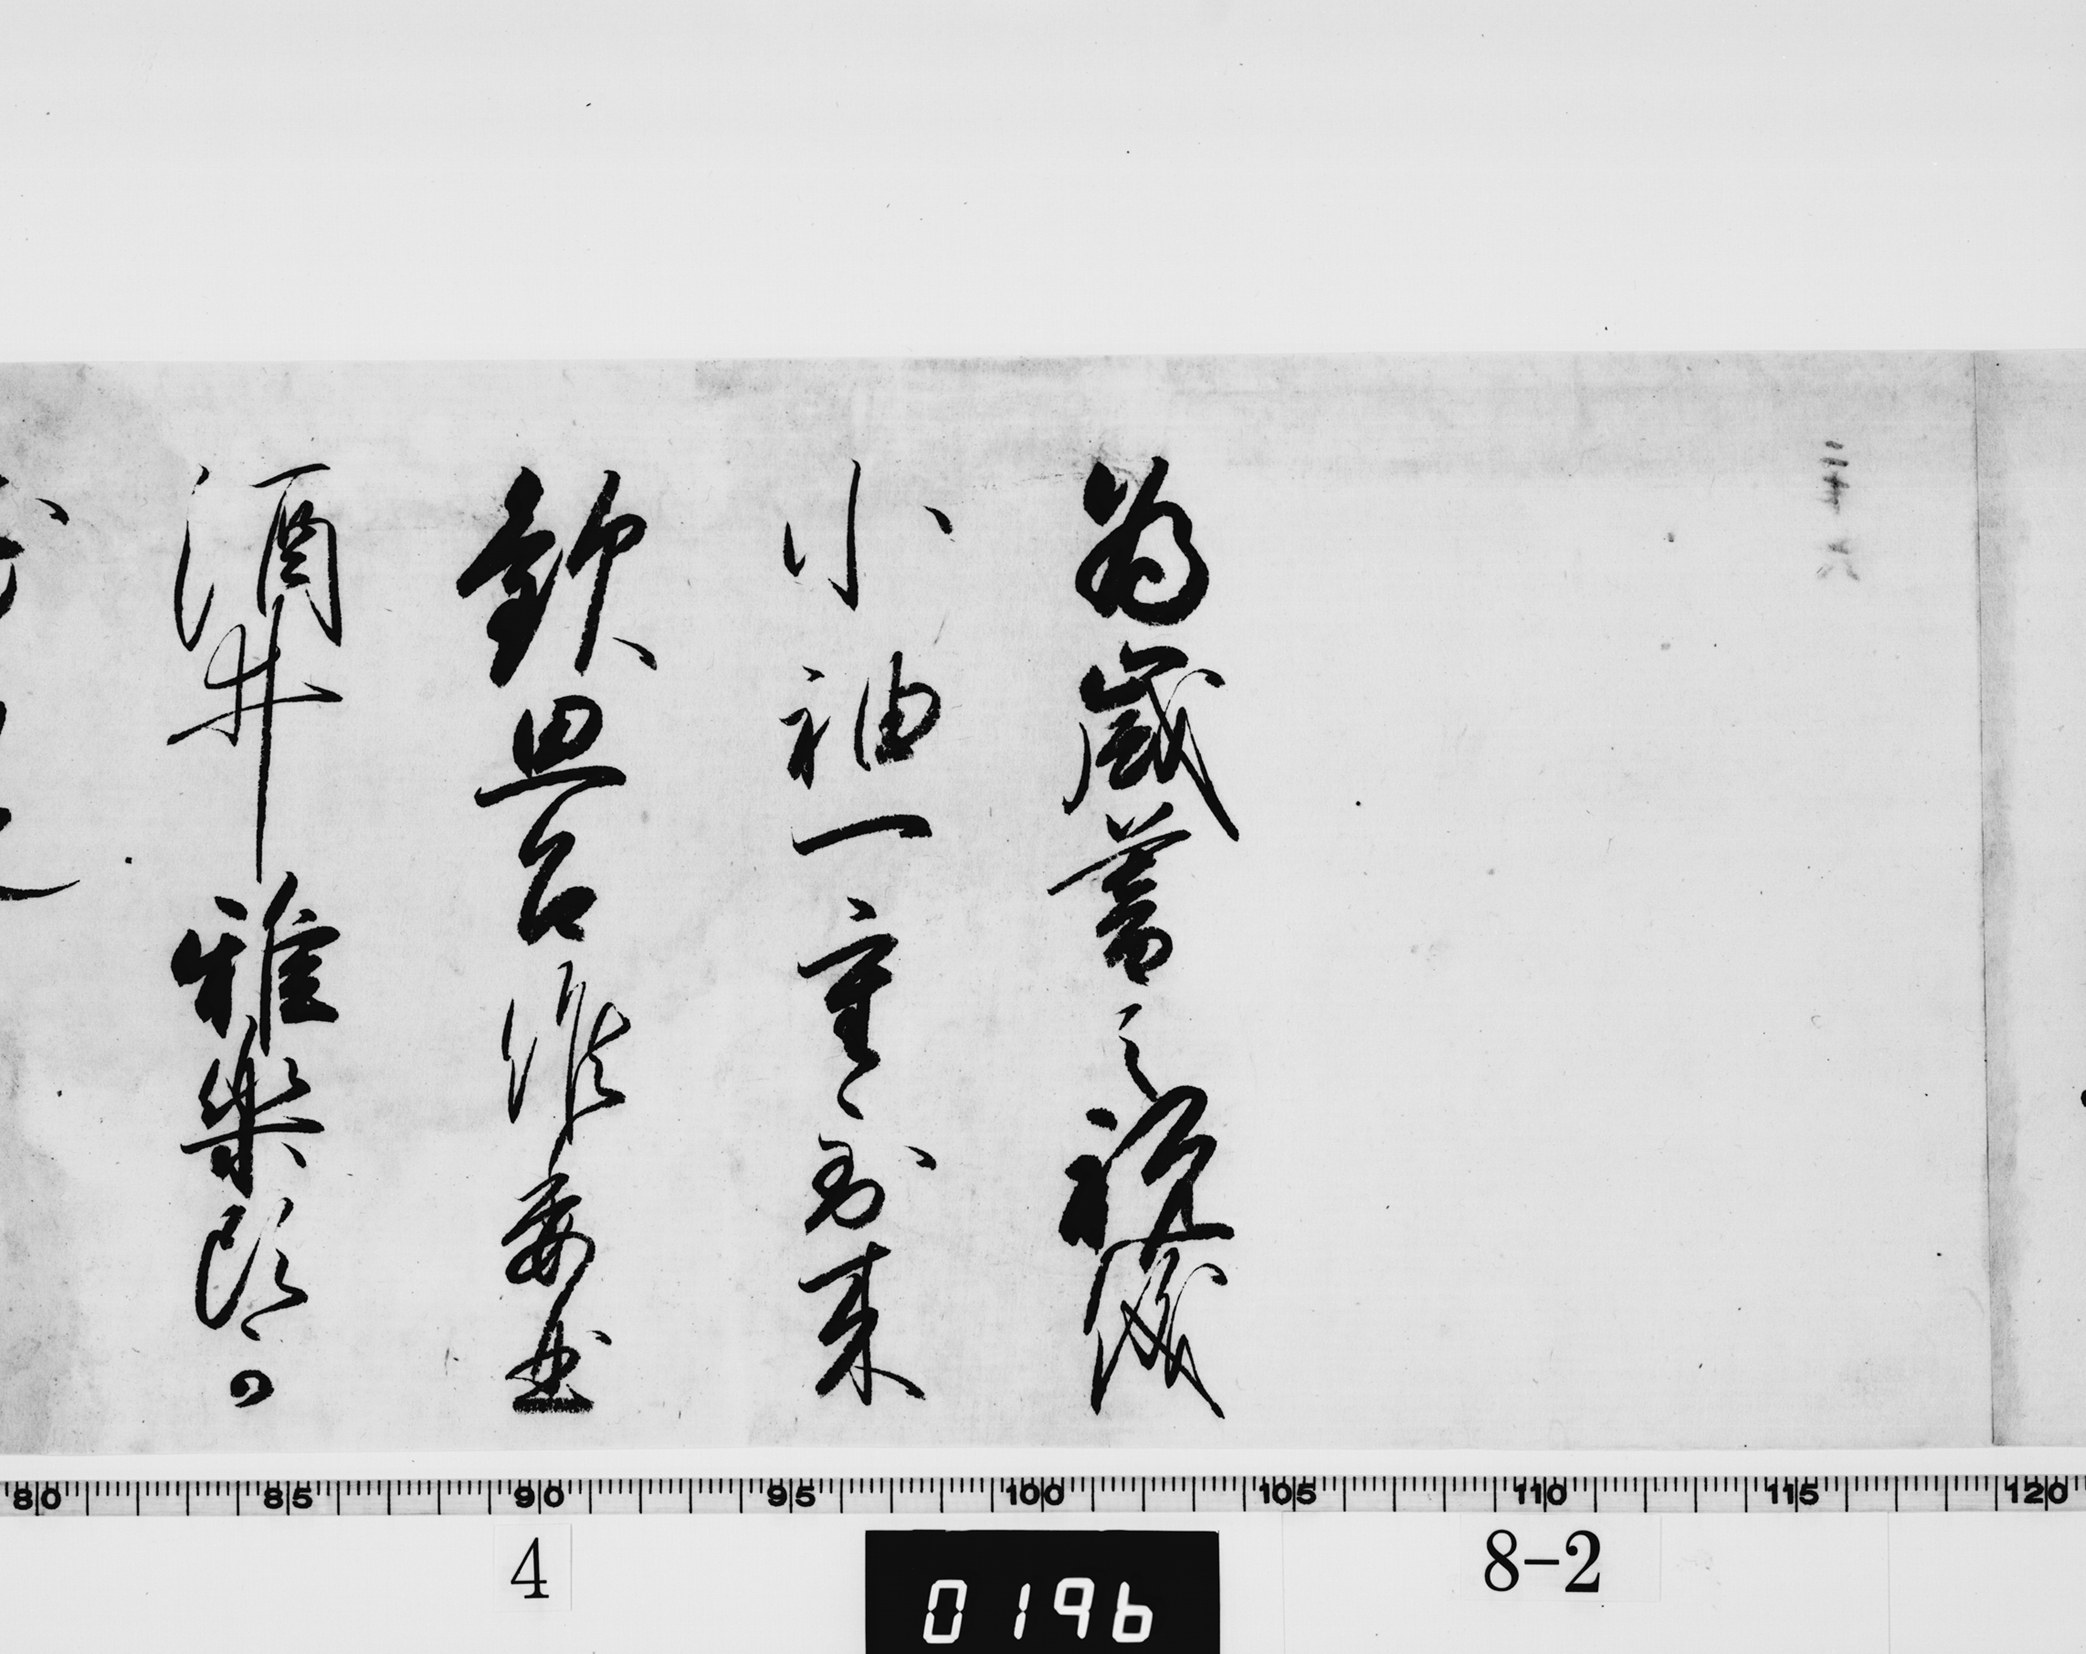 為歳暮之祝儀
小袖一重到来
歓思召候委曲
酒井雅楽頭可
80 85 90 95 100 105 110 115 120
4
0196
8-2